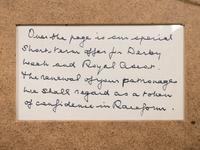 Over the page is our special
short term offer for Derby
week and Royal Ascot.
The renewal of your patronages
we shall regard as a token
of confidence in Raceform.